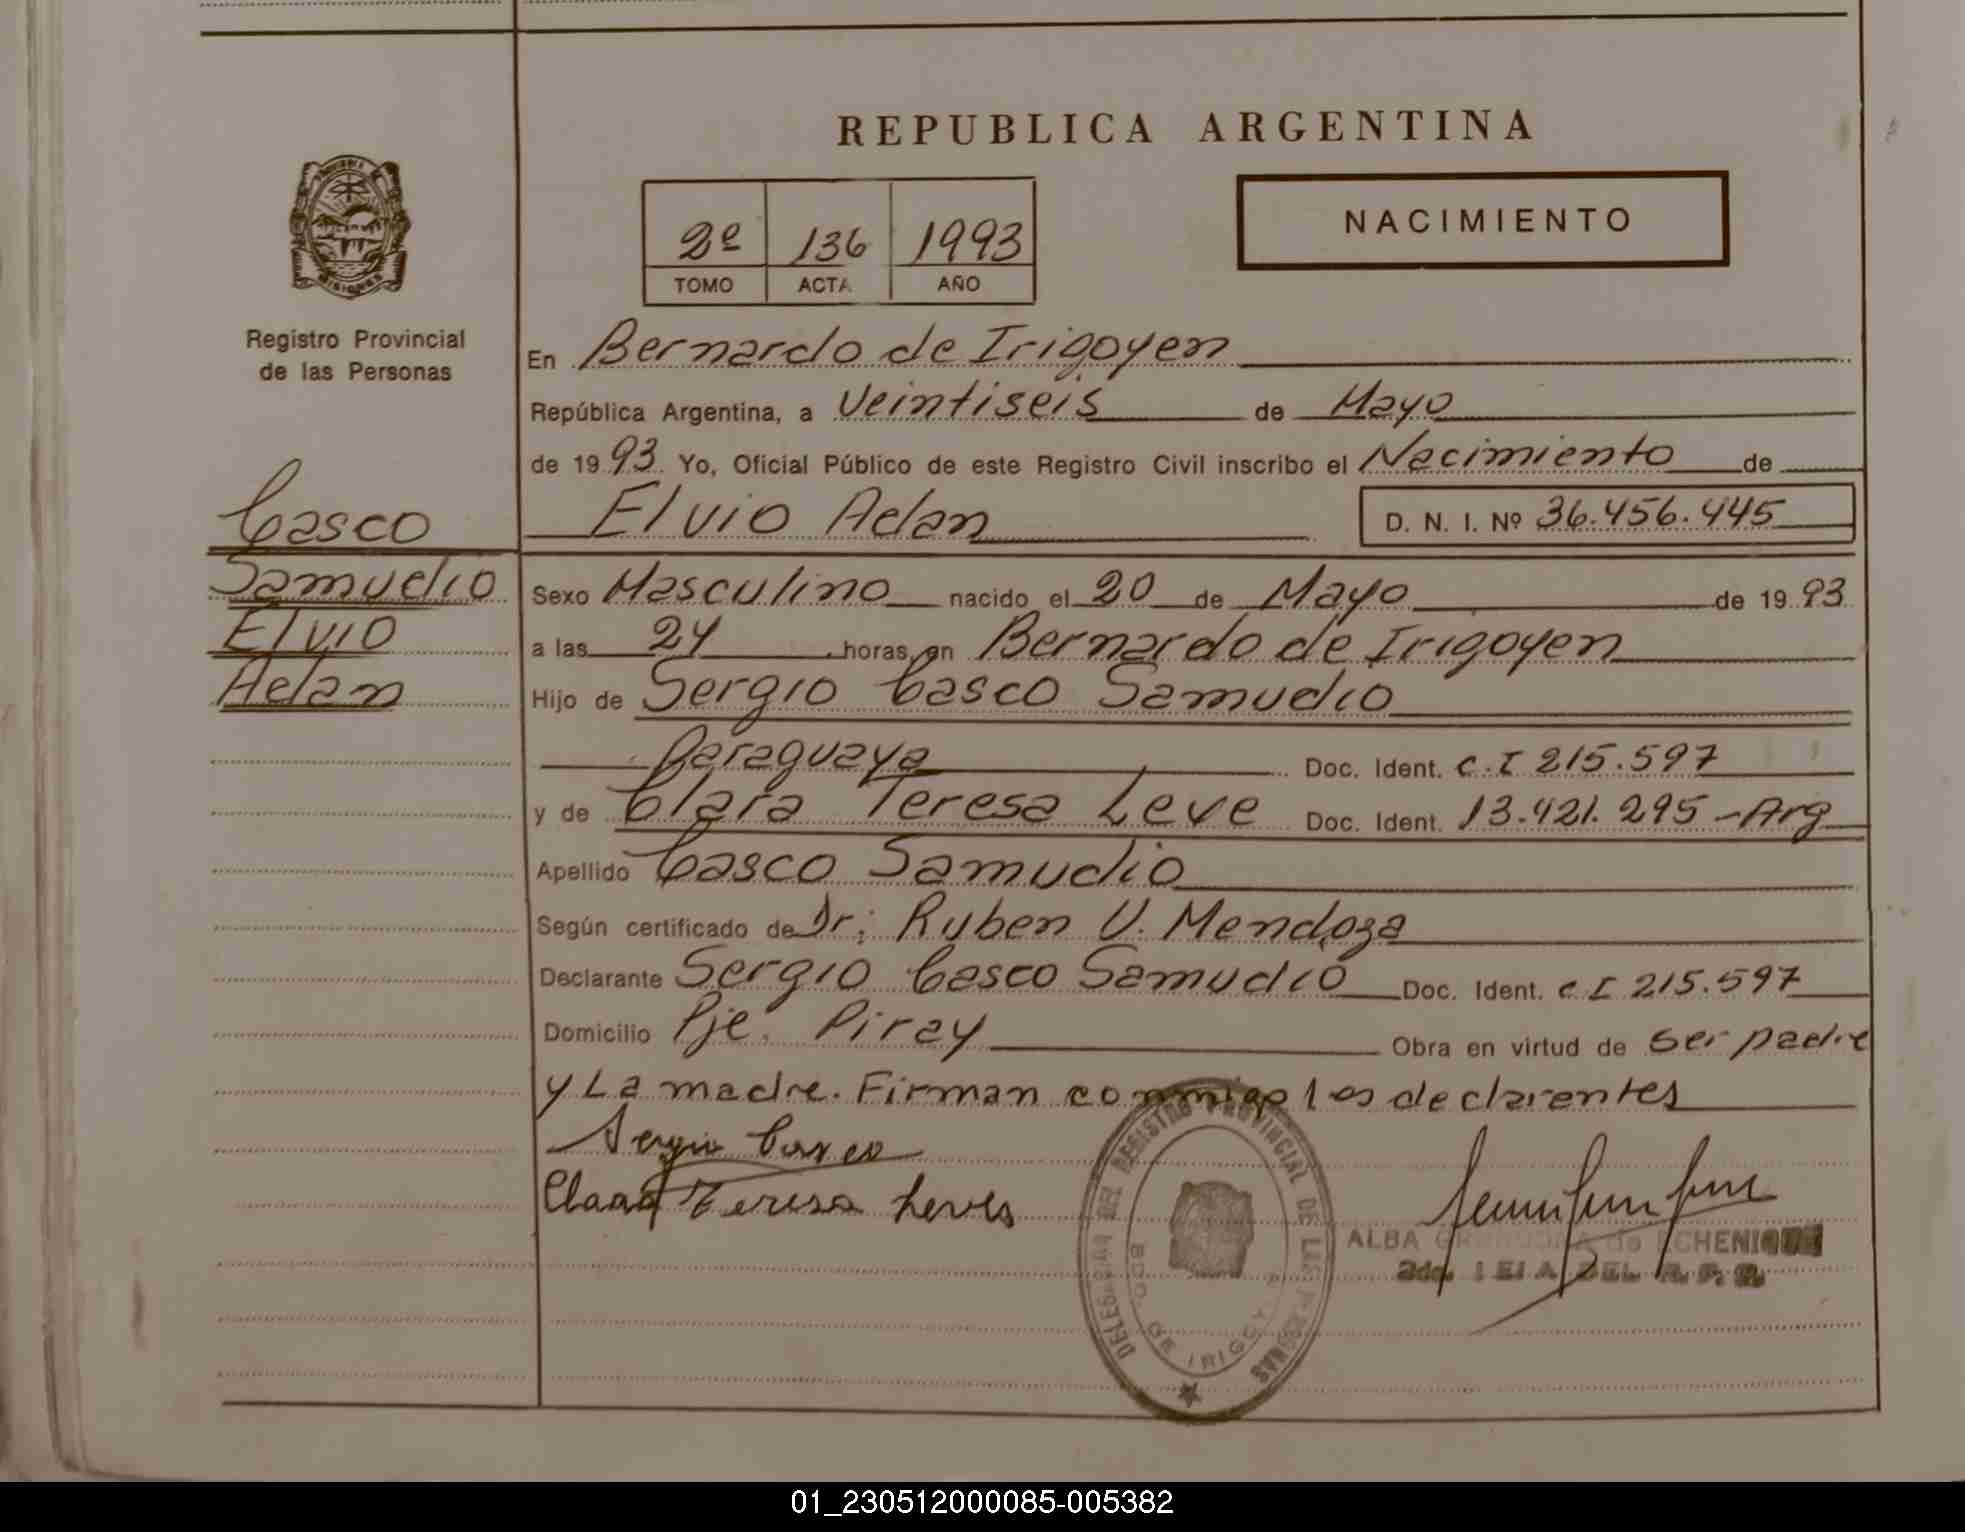 REPUBLICA ARGENTINA
NACIMIENTO
2º 136 1993
TOMO ACTA AÑO
MISIONES
Registro Provincial
de las Personas
Casco
Samudio
Elvio
Adan
En Bernardo de Irigoyen
República Argentina, a Veintiseis de Mayo
de 1993 Yo, Oficial Público de este Registro Civil inscribo el Nacimiento de
Elvio Adan D. N. I. Nº 36.456.445
Sexo Masculino nacido el 20 de Mayo de 1993
a las 24 horas, en Bernardo de Irigoyen
Hijo de Sergio Casco Samudio
Paraguaya Doc. Ident. C.I 215.597
y de Clara Teresa Leve Doc. Ident. 13.421.295 - Arg
Apellido Casco Samudio
Según certificado de Dr; Ruben V. Mendoza
Declarante Sergio Casco Samudio Doc. Ident. C I 215.597
Domicilio Pje. Piray Obra en virtud de ser padre
y La madre. Firman conmigo los declarentes
Sergio Casco
Clara Teresa Leves
DELEG DEL REGISTRO PROVINCIAL DE LAS PERSONAS
BDO. DE IRIGOY
ALBA de ECHENIQUE
DEL R. P. P.
01_230512000085-005382